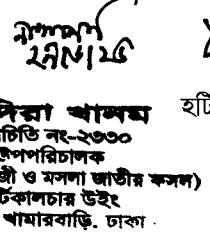 দিরা খানম
চিতি নং-২৩৩০
উপপরিচালক
জী ও মসলা জাতীয় ফসল)
র্টিকালচার উইং
খামারবাড়ি, ঢাকা
হটি